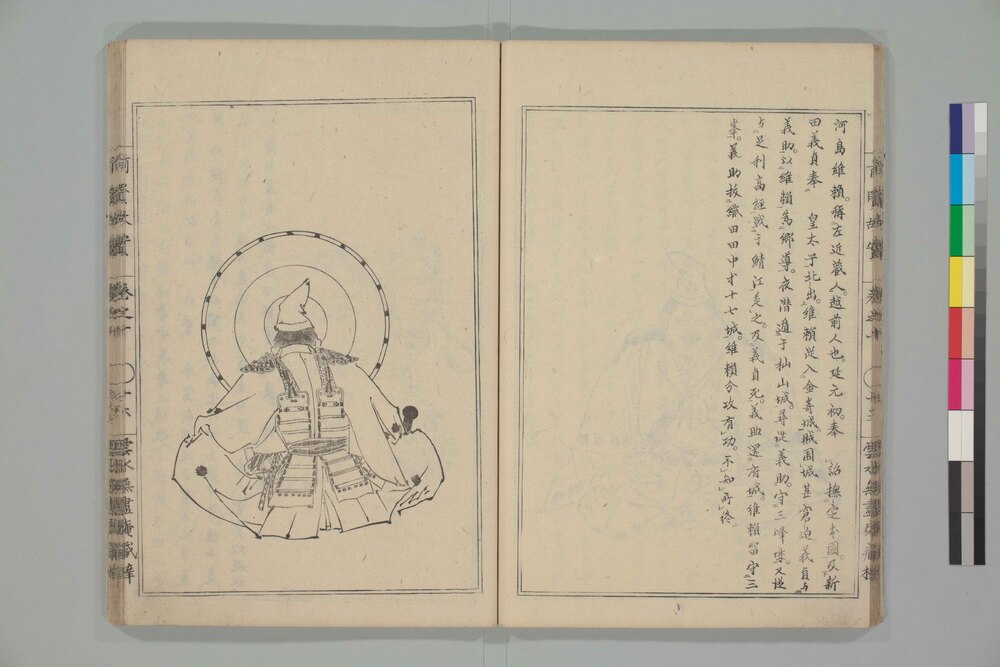 河島維頼。稱左近蔵人。越前人也。延元初。奉　詔撫定本國。及新
田義貞奉　皇太子北出。維頼從入金嵜城。賊圍城甚窘迫。義貞与
義助。以維頼為郷導。夜潜遁于杣山城。尋從義助。守三峰城。又從
与足利高經戰于鯖江
之。及義貞死。義助還府城。維頼留守三
峯。義助拔織田田中才十七城。維頼分攻有功。不知所終。
前賢故實
巻之十
前賢故實
巻之十
十六
雲水無盡庵藏梓